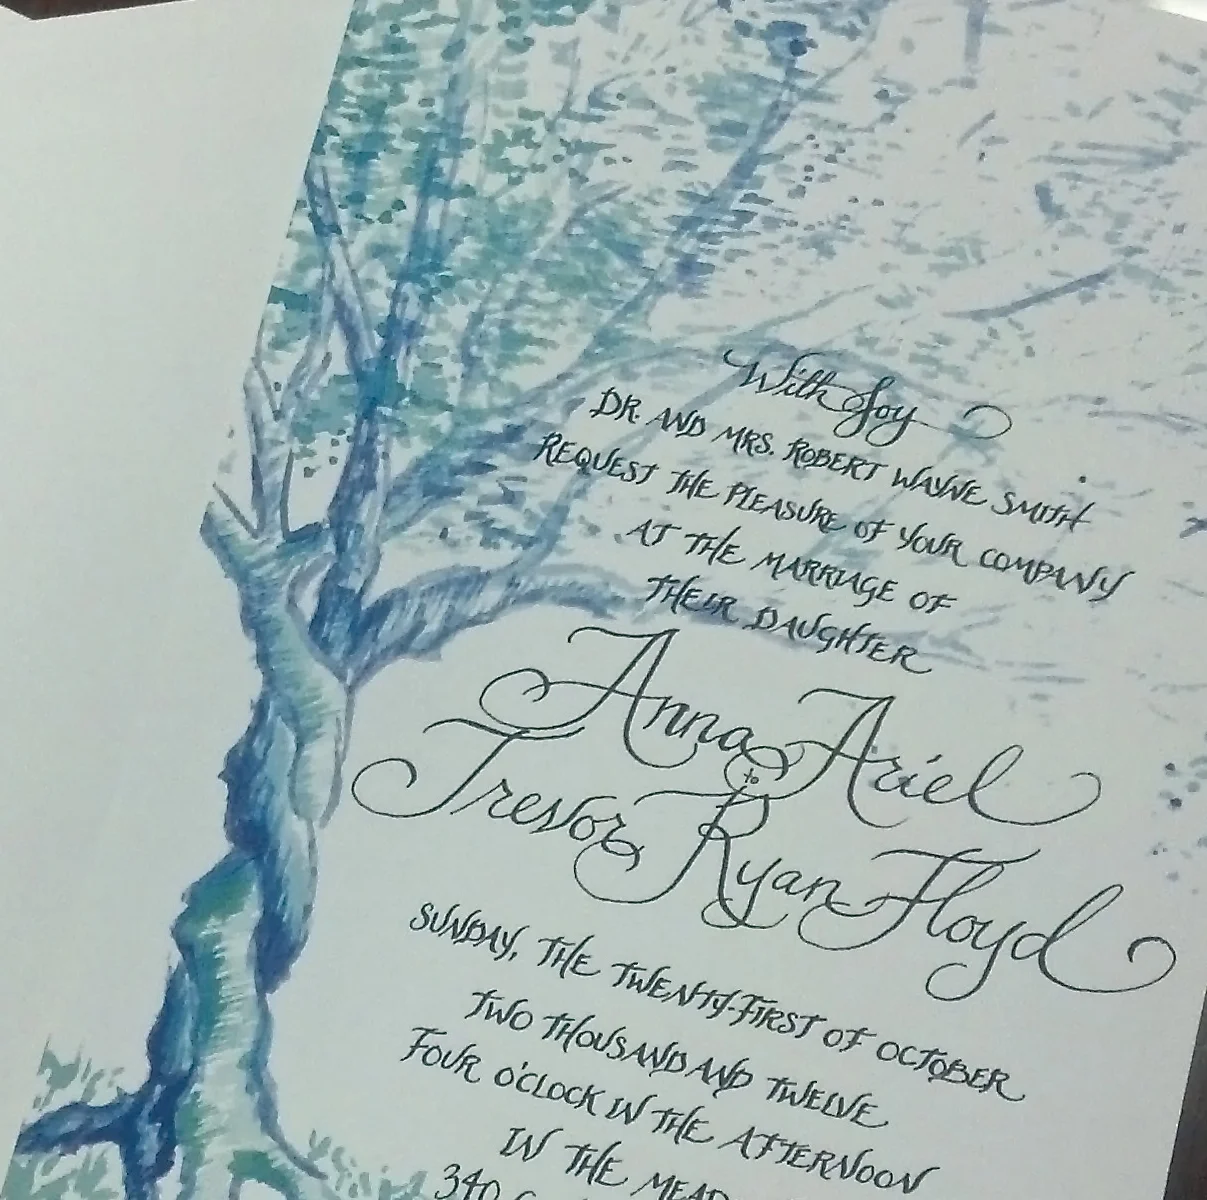 With Joy
DR. AND MRS. ROBERT WAYNE SMITH
REQUEST THE PLEASURE OF YOUR COMPANY
AT THE MARRIAGE OF
THEIR DAUGHTER
Anna Ariel
to
Trevor Ryan Floyd
SUNDAY, THE TWENTY-FIRST OF OCTOBER
TWO THOUSAND AND TWELVE
FOUR O'CLOCK IN THE AFTERNOON
IN THE
340